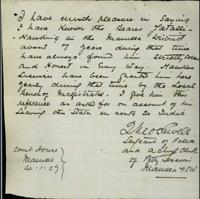 I have much pleasure in saying
I have known the Bearer
Hawking in the Manaro District
about 7 years during that time
have always found him strictly
and honest in any way. Hawkers
Licenses have been granted him here
yearly during that time by the Local
Bench of Magistrates. I give him this
reference as asked for on account of his
leaving the State en route to India
Sergeant of Police
and acting Clerk
of Petty Sessions
N.S.W.
Court House